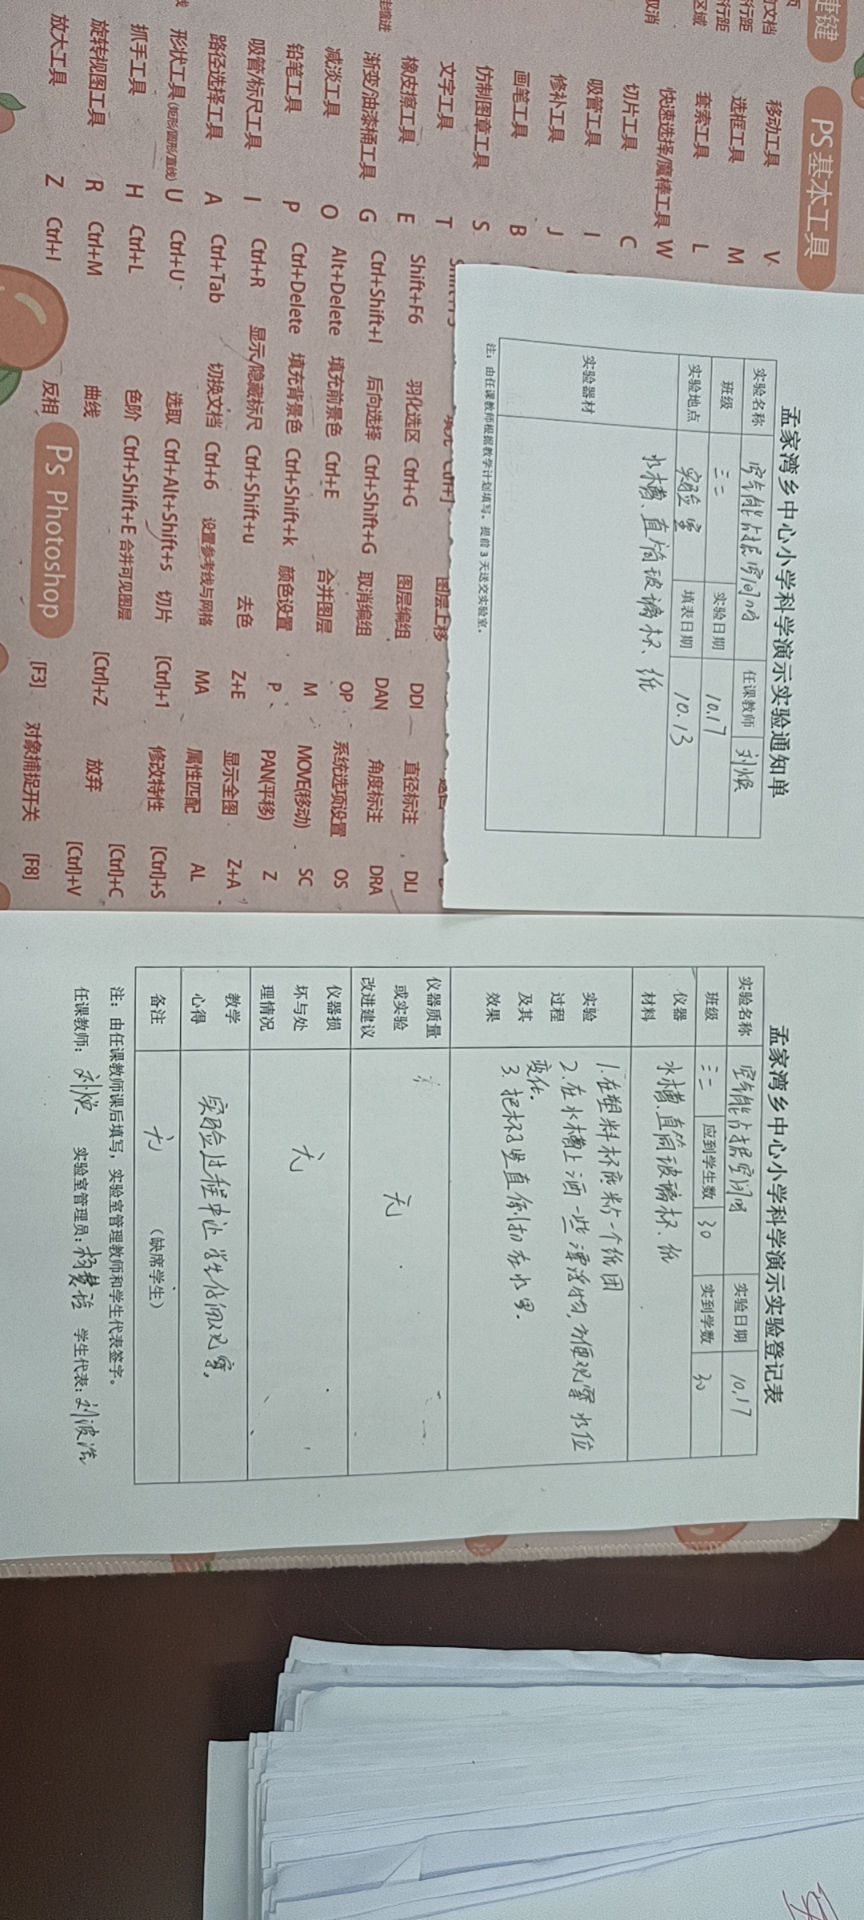 孟家湾乡中心小学科学演示实验通知单
实验名称 空气能占据空间吗 任课教师 刘
班级 三二 实验日期 10.17
实验地点 实验室 填表日期 10.13
实验器材 水槽、直筒玻璃杯、纸
注：由任课教师根据教学计划填写，提前 3 天送交实验室。
孟家湾乡中心小学科学演示实验登记表
实验名称 空气能占据空间吗 实验日期 10.17
班级 三二 应到学生数 30 实到学数 30
仪器材料 水槽、直筒玻璃杯、纸
实验过程及其效果 1.在塑料杯底粘一个纸团
2.在水槽上洒一些漂浮物,方便观察水位
变化.
3.把杯子竖直倒扣在水里.
仪器质量或实验改进建议 无
仪器损坏与处理情况 无
教学心得 实验过程中让学生仔细观察。
备注 无 （缺席学生）
注：由任课教师课后填写，实验室管理教师和学生代表签字。
任课教师： 刘 实验室管理员： 杨 学生代表： 刘波浩
捷键
PS基本工具
移动工具 V
选框工具 M
套索工具 L
快速选择/魔棒工具 W
切片工具 C
吸管工具 I
修补工具 J
画笔工具 B
仿制图章工具 S
文字工具 T
橡皮擦工具 E Shift+F6 羽化选区 Ctrl+G 图层编组 DDI 直径标注 DLI
渐变/油漆桶工具 G Ctrl+Shift+I 后向选择 Ctrl+Shift+G 取消编组 DAN 角度标注 DRA
减淡工具 O Alt+Delete 填充前景色 Ctrl+E 合并图层 OP 系统选项设置 OS
铅笔工具 P Ctrl+Delete 填充背景色 Ctrl+Shift+k 颜色设置 M MOVE(移动) SC
吸管/标尺工具 I Ctrl+R 显示/隐藏标尺 Ctrl+Shift+u 去色 P PAN(平移) Z
路径选择工具 A Ctrl+Tab 切换文档 Ctrl+6 设置参考线与网格 Z+E 显示全图 Z+A
形状工具(矩形/圆形/直线) U Ctrl+U 选取 Ctrl+Alt+Shift+s 切片 MA 属性匹配 AL
抓手工具 H Ctrl+L 色阶 Ctrl+Shift+E 合并可见图层 [Ctrl]+1 修改特性 [Ctrl]+S
旋转视图工具 R Ctrl+M 曲线 [Ctrl]+Z 放弃 [Ctrl]+C
放大工具 Z Ctrl+I 反相 [F3] 对象捕捉开关 [F8]
[Ctrl]+V
Ps Photoshop